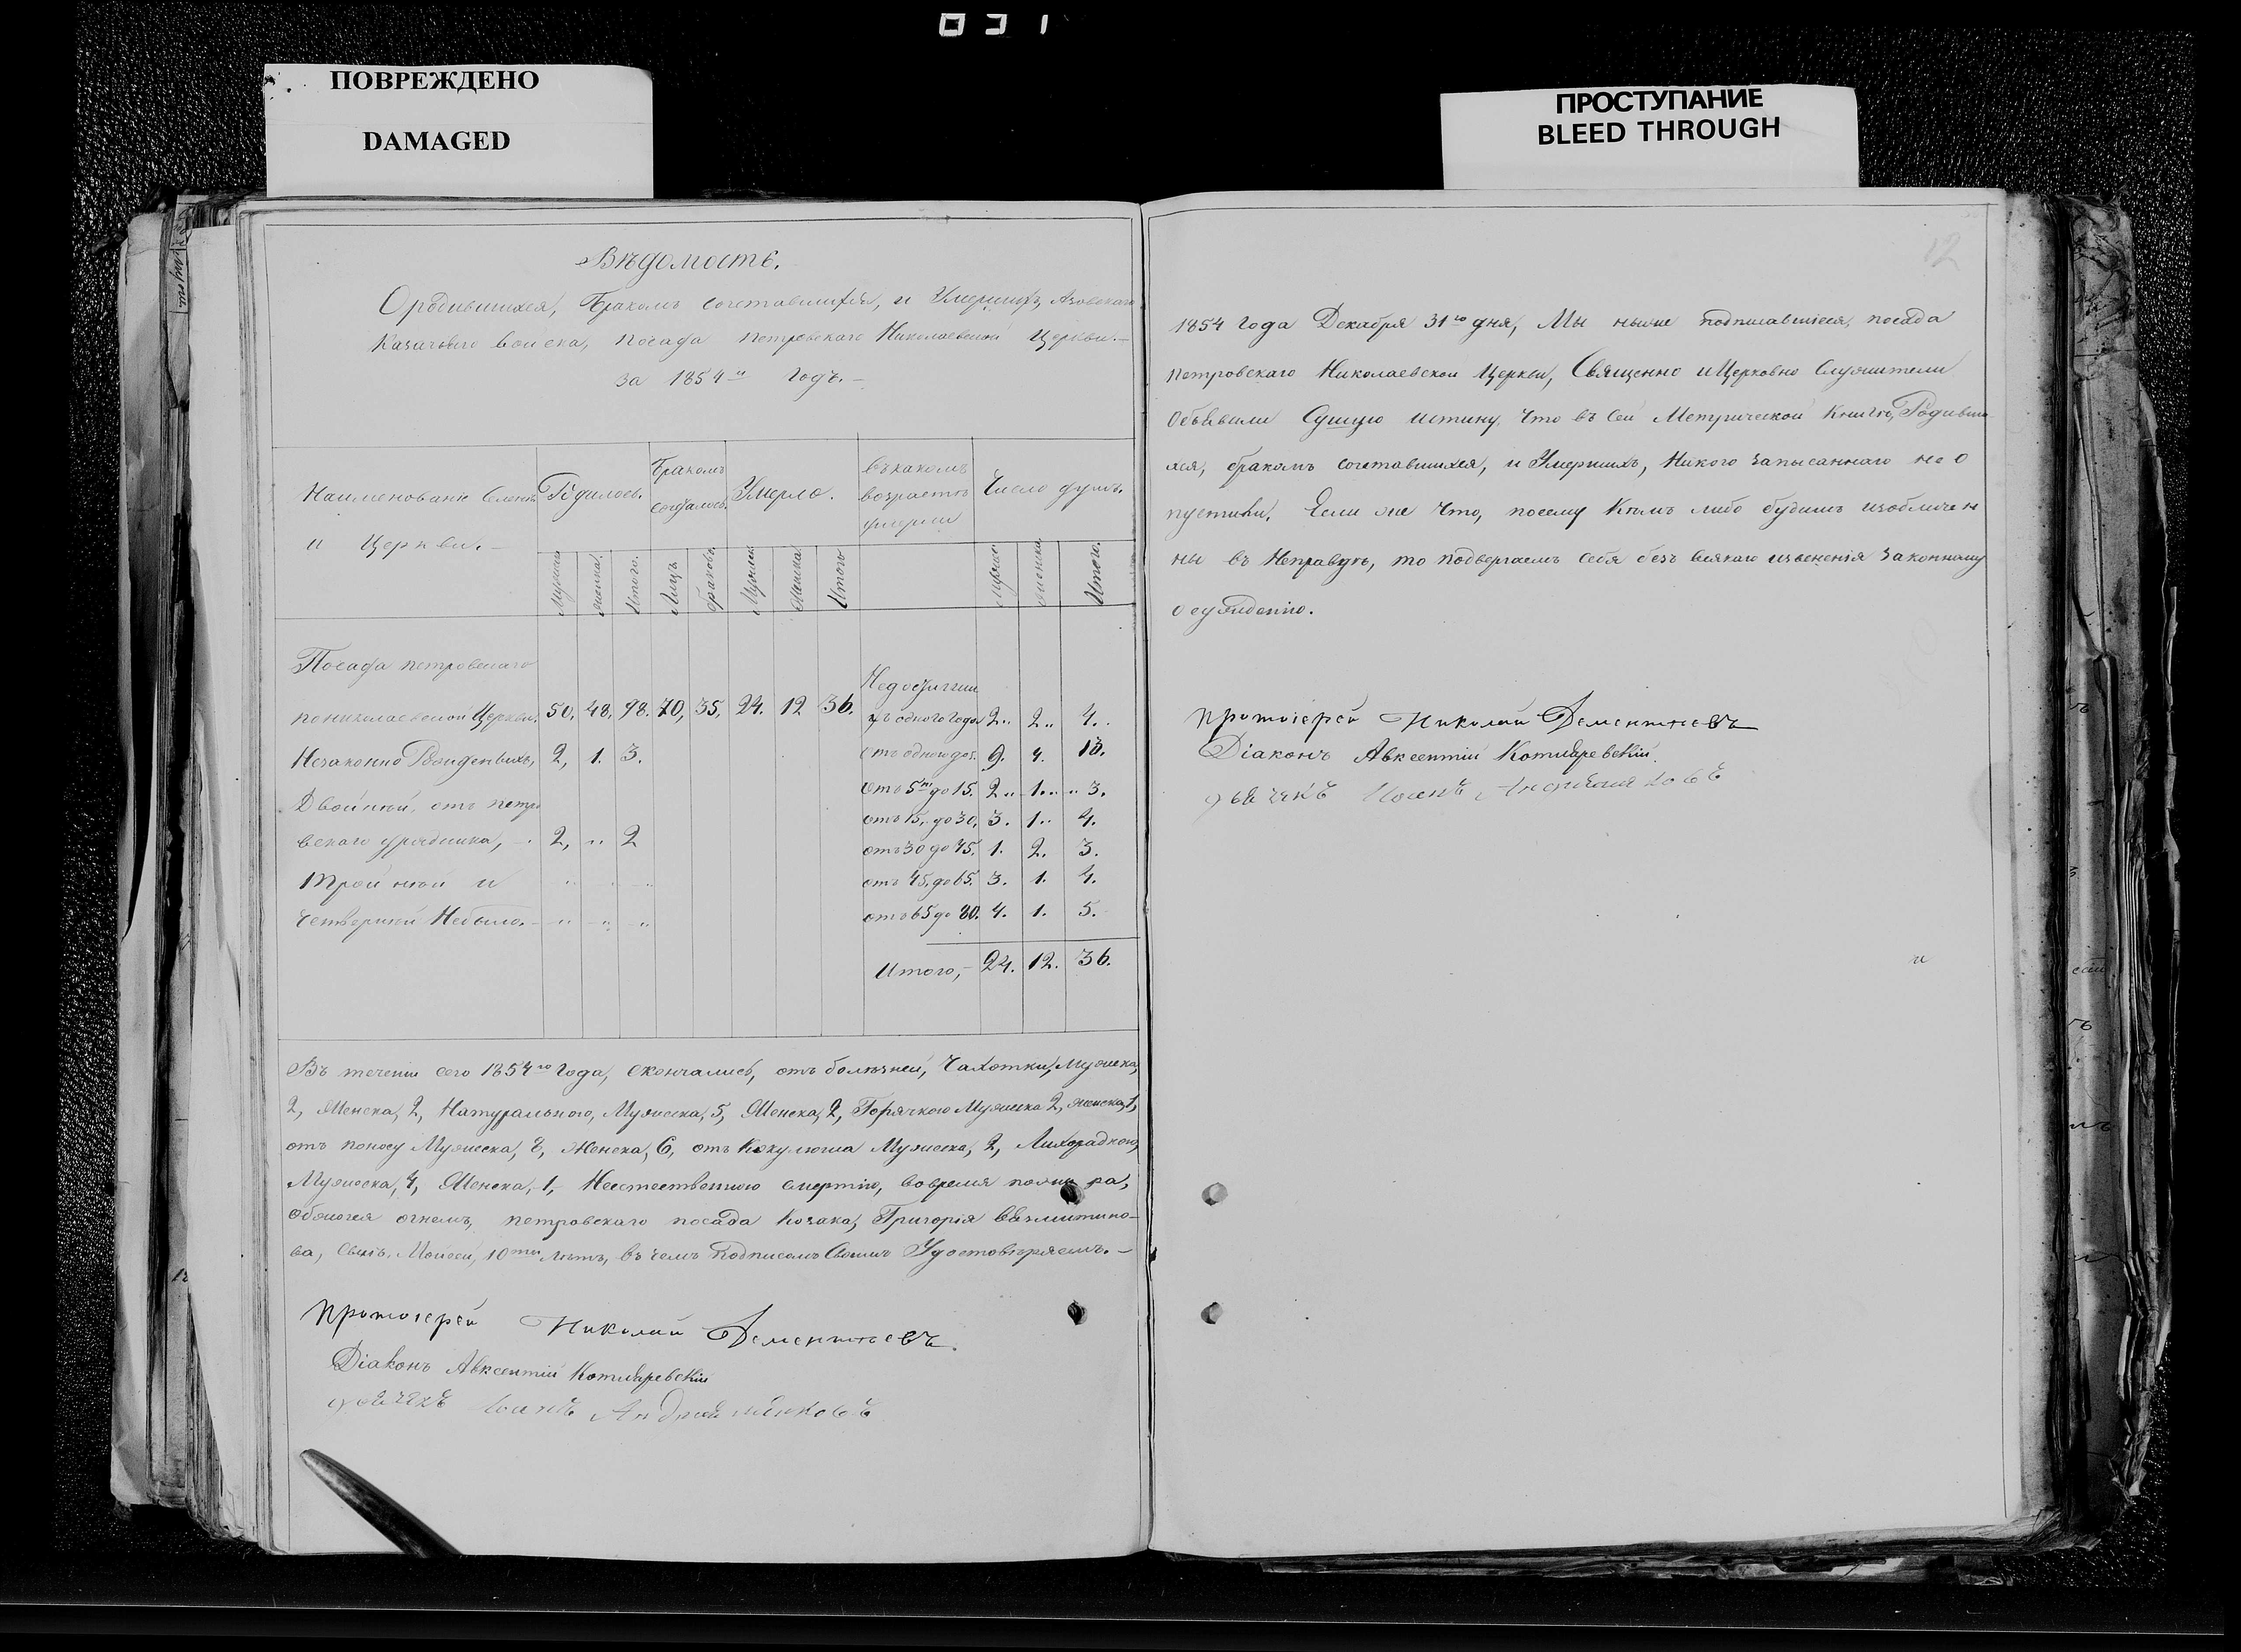 031
ПОВРЕЖДЕНО
DAMAGED
ПРОСТУПАНИЕ
BLEED THROUGH
Вѣдомость.
О родившихся, Бракомъ сочетавшихся, и Умершихъ, Азовскаго
Казачьяго войска, посада петровскаго Николаевской Церкви.—
за 1854й годъ.—
Наименованіе
и Церкви.—
Родилось.
Бракомъ
Умерло.
въ какомъ
возрастѣ
умерли
Число душъ.
Мужска
женска
Итого.
Лицъ
браковъ
Мужска
Женска
Итого
Мужска
женска
Итого.
Посада петровскаго
Николаевской Церкви. 50. 48. 98. 70, 35, 24. 12 36.
Незаконно Рожденныхъ, 2, 1. 3.
Двойней, отъ петро
вскаго урядника, 2, " 2
Тройней и
четверней Небыло.—
Недостигши
хъ одного года 2.. 2.. 4..
отъ одного до 5. 9. 4. 13.
отъ 5ти до 15. 2.. 1.. 3.
отъ 15, до 30, 3. 1.. 4.
отъ 30 до 45. 1. 2. 3.
отъ 45, до 65. 3. 1. 4.
отъ 65 до 80. 4. 1. 5.
Итого,— 24. 12. 36.
Въ теченіи сего 1854го Года, скончались, отъ болѣзней, Чахотки, Мужеска,
2, Женска, 2, Натурального, Мужеска, 5, Женска, 2, Горячкою Мужеска 2, женска, 1,
отъ поносу Мужеска, 8, Женска, 6, отъ Кокулюша Мужеска, 2, Лихорадкою,
Мужеска, 4, Женска, 1, Неестественною смертію, вовремя пожара,
обжогся огнемъ, петровскаго посада Козака, Григорія
ва, сынъ Моисей, 10ти лѣтъ, въ чемъ подписомъ Своимъ Удостовѣряемъ.—
Протоіерей Николай Дементьевъ.
Діаконъ Авксентій Котляревскій
Іоанъ
12
1854 года Декабря 31го дня, Мы ниже подписавшіеся, посада
петровскаго Николаевской Церкви, Священно и Церковно Служители
Объявили Сущую истину, что въ сей Метрической Книгѣ, Родивши
хся, бракомъ сочетавшихся, и Умершихъ, Никого записаннаго не о
пустили, Если же что, посему Кѣмъ либо будимъ изобличен
ны въ Неправдѣ, то подвергаемъ себя безъ всякаго извененія законному
осужденію.
протоіерей Николай Дементьевъ
Діаконъ Авксентій Котляревскій.
Іоанъ